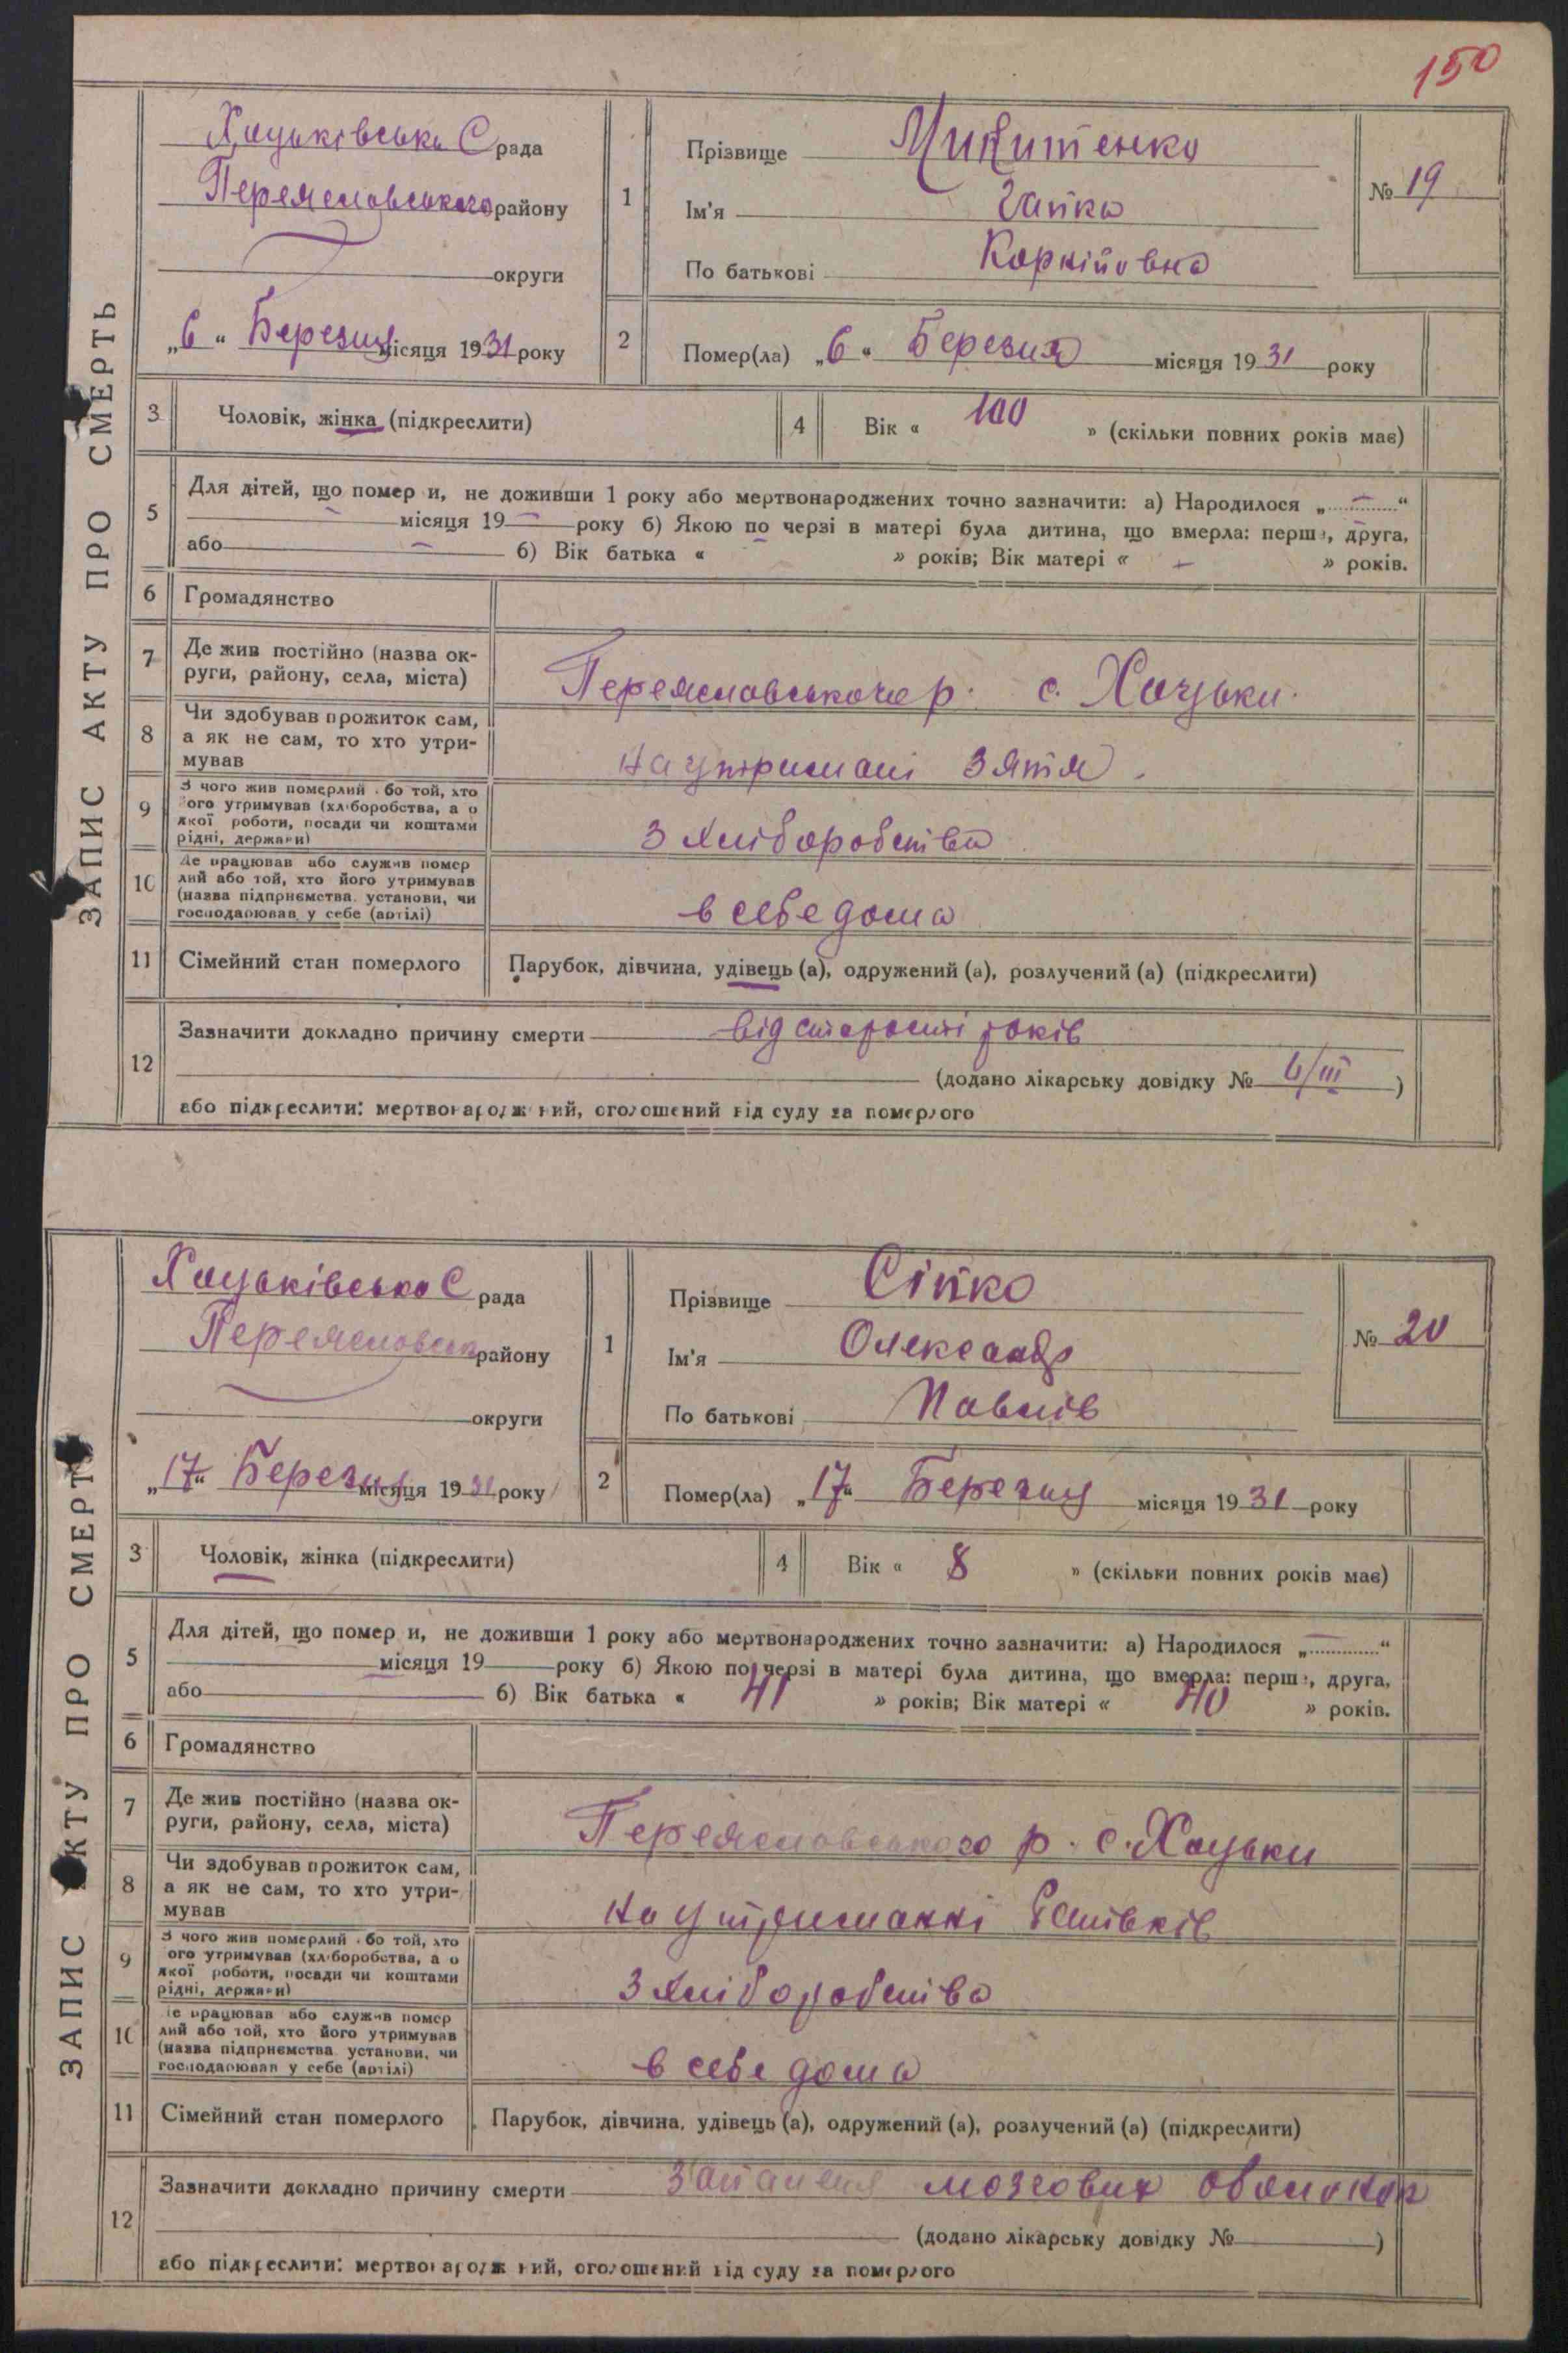 150
ЗАПИС АКТУ ПРО СМЕРТЬ
Хацьківська С рада
Переяславського району
округи
„6“ Березня місяця 1931 року
1
Прізвище Микитенко
Ім'я Гапка
По батькові Корніївна
№ 19
2
Помер(ла) „6“ Березня місяця 1931 року
3 Чоловік, жінка (підкреслити)
4 Вік « 100 » (скільки повних років має)
5 Для дітей, що помер и, не доживши 1 року або мертвонароджених точно зазначити: а) Народилося „ — “
— місяця 19 — року б) Якою по черзі в матері була дитина, що вмерла: перша, друга,
або — б) Вік батька « » років; Вік матері « — » років.
6 Громадянство
7 Де жив постійно (назва ок-
руги, району, села, міста)
Переяславського р. с. Хацьки.
8 Чи здобував прожиток сам,
а як не сам, то хто утри-
мував
на утримані Зятя.
9 З чого жив померлий або той, хто
його утримував (хліборобства, а о
якої роботи, посади чи коштами
рідні, держави)
З хліборобства
10 Де працював або служив помер
лий або той, хто його утримував
(назва підприємства, установи, чи
господарював у себе (артілі)
в себе дома
11 Сімейний стан померлого
Парубок, дівчина, удівець (а), одружений (а), розлучений (а) (підкреслити)
12 Зазначити докладно причину смерти від старости років
(додано лікарську довідку № 6/III )
або підкреслити: мертвонароджений, оголошений від суду за померлого
ЗАПИС АКТУ ПРО СМЕРТЬ
Хацьківська С рада
Переяславськ району
округи
„17“ Березня місяця 1931 року
1
Прізвище Сіпко
Ім'я Олександр
По батькові Павлів
№ 20
2
Помер(ла) „17“ Березня місяця 1931 року
3 Чоловік, жінка (підкреслити)
4 Вік « 8 » (скільки повних років має)
5 Для дітей, що помер и, не доживши 1 року або мертвонароджених точно зазначити: а) Народилося „ “
місяця 19 року б) Якою по черзі в матері була дитина, що вмерла: перша, друга,
або б) Вік батька « 41 » років; Вік матері « 40 » років.
6 Громадянство
7 Де жив постійно (назва ок-
руги, району, села, міста)
Переяславського р. с. Хацьки
8 Чи здобував прожиток сам,
а як не сам, то хто утри-
мував
на утриманні батьків
9 З чого жив померлий або той, хто
його утримував (хліборобства, а о
якої роботи, посади чи коштами
рідні, держави)
З хліборобства
10 Де працював або служив помер
лий або той, хто його утримував
(назва підприємства установи, чи
господарював у себе (артілі)
в себе дома
11 Сімейний стан померлого
Парубок, дівчина, удівець (а), одружений (а), розлучений (а) (підкреслити)
12 Зазначити докладно причину смерти Запалення мозгових оболонок
(додано лікарську довідку № )
або підкреслити: мертвонароджений, оголошений від суду за померлого